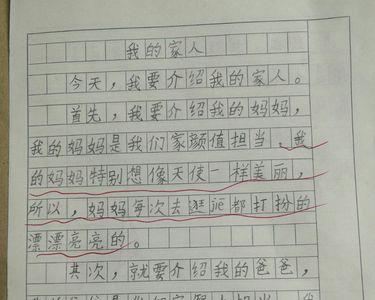 我的家人
今天，我要介绍我的家人。
首先，我要介绍我的妈妈，
我的妈妈是我们家颜值担当，我
的妈妈特别想像天使一样美丽，
所以，妈妈每次去逛街都打扮的
漂漂亮亮的。
其次，就要介绍我的爸爸，